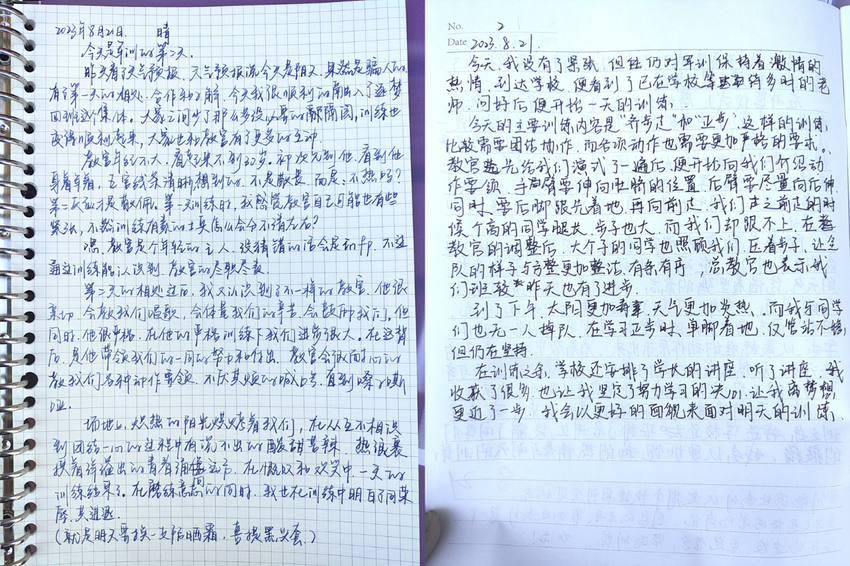 2023年8月21日 晴
今天是军训的第二天。
昨天看了天气预报，天气预报说今天是阴天，果然是骗人的
有了第一天的相处，合作和了解，今天我很顺利的融入了逐梦
四班这个集体。大家之间少了那么多没必要的隔阂，训练也
变得顺利起来，大家也和教官有了更多的互动。
教官年纪不大，看起来不到20岁。初次见到他，看到他
穿着军装，五官线条清晰想到的，不是敬畏，而是：不热吗？
第二反应才是敬佩。第一天训练时，我感觉教官自己可能也有些
紧张，不然训练有素的士兵怎么会分不清左右？
嗯，教官是个年轻的主人，没猜错的话会是
通过训练能认识到，教官的尽职尽责。
第二天的相处过后，我又认识到了不一样的教官，他很
亲切，会教我们唱歌，会体贴我们的辛苦，会鼓励我们，但
同时，他很严格，在他的严格训练下我们进步很大。在这背
后，是他带领我们的一同的努力和付出，教官会很用心的
教我们各种动作要领，不厌其烦的喊口号，直到嗓子嘶
哑。
场地上，炽热的阳光烘烤着我们，在从互不相识
到团结一心的过程中有说不出的酸甜苦辣，热浪裹
挟着洋溢出的青春涌向远方，在 和欢笑中，一天的
训练结束了。在磨练意志的同时，我也在训练中明白了同荣
辱，共进退。
（就是明天要换一支防晒霜，喜提黑头套）
No. 2
Date 2023.8.21.
今天，我没有了紧张，但任仍对军训保持着激情的
热情，到达学校，便看到了已在学校等待多时的老
师，问好后，便开始一天的训练；
今天的主要训练内容是“齐步走”加“正步”，这样的训练，
比较需要团结协作，而各项动作也需要更加严格的要求。
教官先给我们演式了一遍后，便开始向我们介绍动
作要领，手臂要伸向肚脐的位置，后臂要尽量向后伸
同时，要后脚跟先着地，再向前走，我们走之前走的时
候，个高的同学腿长，步子也大，而我们却跟不上，在
教官的调整后，大个子的同学也照顾我们，压着步子，让全
队的样子与方整更加整洁，有条有序，总教官也表示我
们班较昨天也有了进步。
到了下午，太阳更加毒辣，天气更加炎热，而我班同学
们也无一人掉队，在学习正步时，单脚着地，仅管站不稳，
但仍在坚持。
在训练之余，学校还安排了学长的讲座，听了讲座，我
收获了很多，也让我坚定了努力学习的决心，让我离梦想
更近了一步，我会以更好的面貌来面对明天的训练。